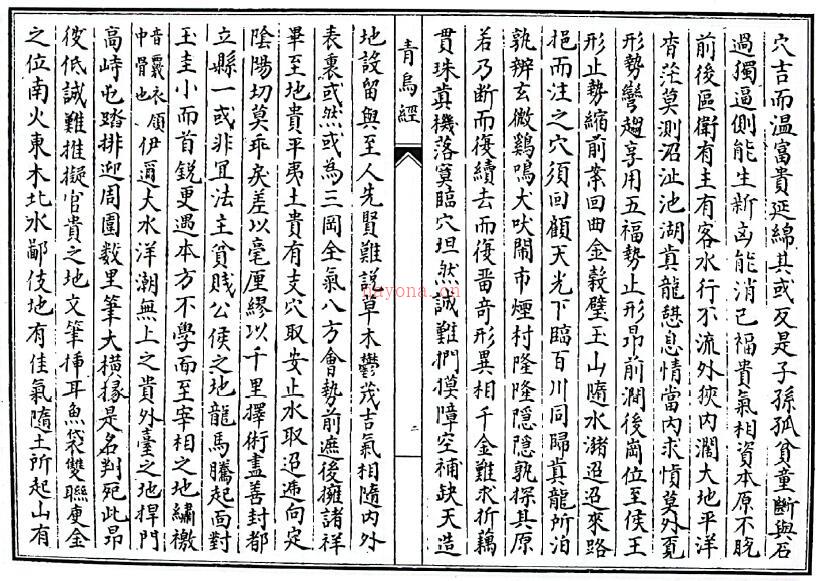 穴吉而温富貴延綿其或反是子孫孤貧童斷與石
過獨逼側能生新凶能消已福貴氣相資本原不脫
前後區衛有主有客水行不流外狹内濶大地平洋
杳茫莫測沼沚池湖真龍憇息情當内求慎莫外覔
形勢彎趨享用五福勢止形昂前澗後崗位至侯王
形止勢縮前案回曲金穀璧玉山隨水潴迢迢來路
挹而注之穴須回顧天光下臨百川同歸真龍所泊
孰辨玄微鷄鳴犬吠鬧市煙村隆隆隱隱孰探其原
若乃斷而復續去而復畱奇形異相千金難求折藕
貫珠真機落莫臨穴坦然誠難捫摸障空補缺天造
青烏經
二
地設留與至人先賢難説草木鬱茂吉氣相隨内外
表裏或然或為三岡全氣八方會勢前遮後擁諸祥
畢至地貴平夷土貴有支穴取安止水取迢逓向定
陰陽切莫乖戾差以毫厘繆以千里擇術盡善封都
立縣一或非宜法主貧賤公侯之地龍馬騰起面對
玉圭小而首鋭更遇本方不學而至宰相之地繡襖
音覊衣領中骨也伊邇大水洋潮無上之貴外臺之地捍門
高峙屯踏排迎周圍數里筆大橫椽是名判死此昂
彼低誠難推擬官貴之地文筆揷耳魚袋雙聯庚金
之位南火東木北水鄙伎地有佳氣隨土所起山有
nayona.cn